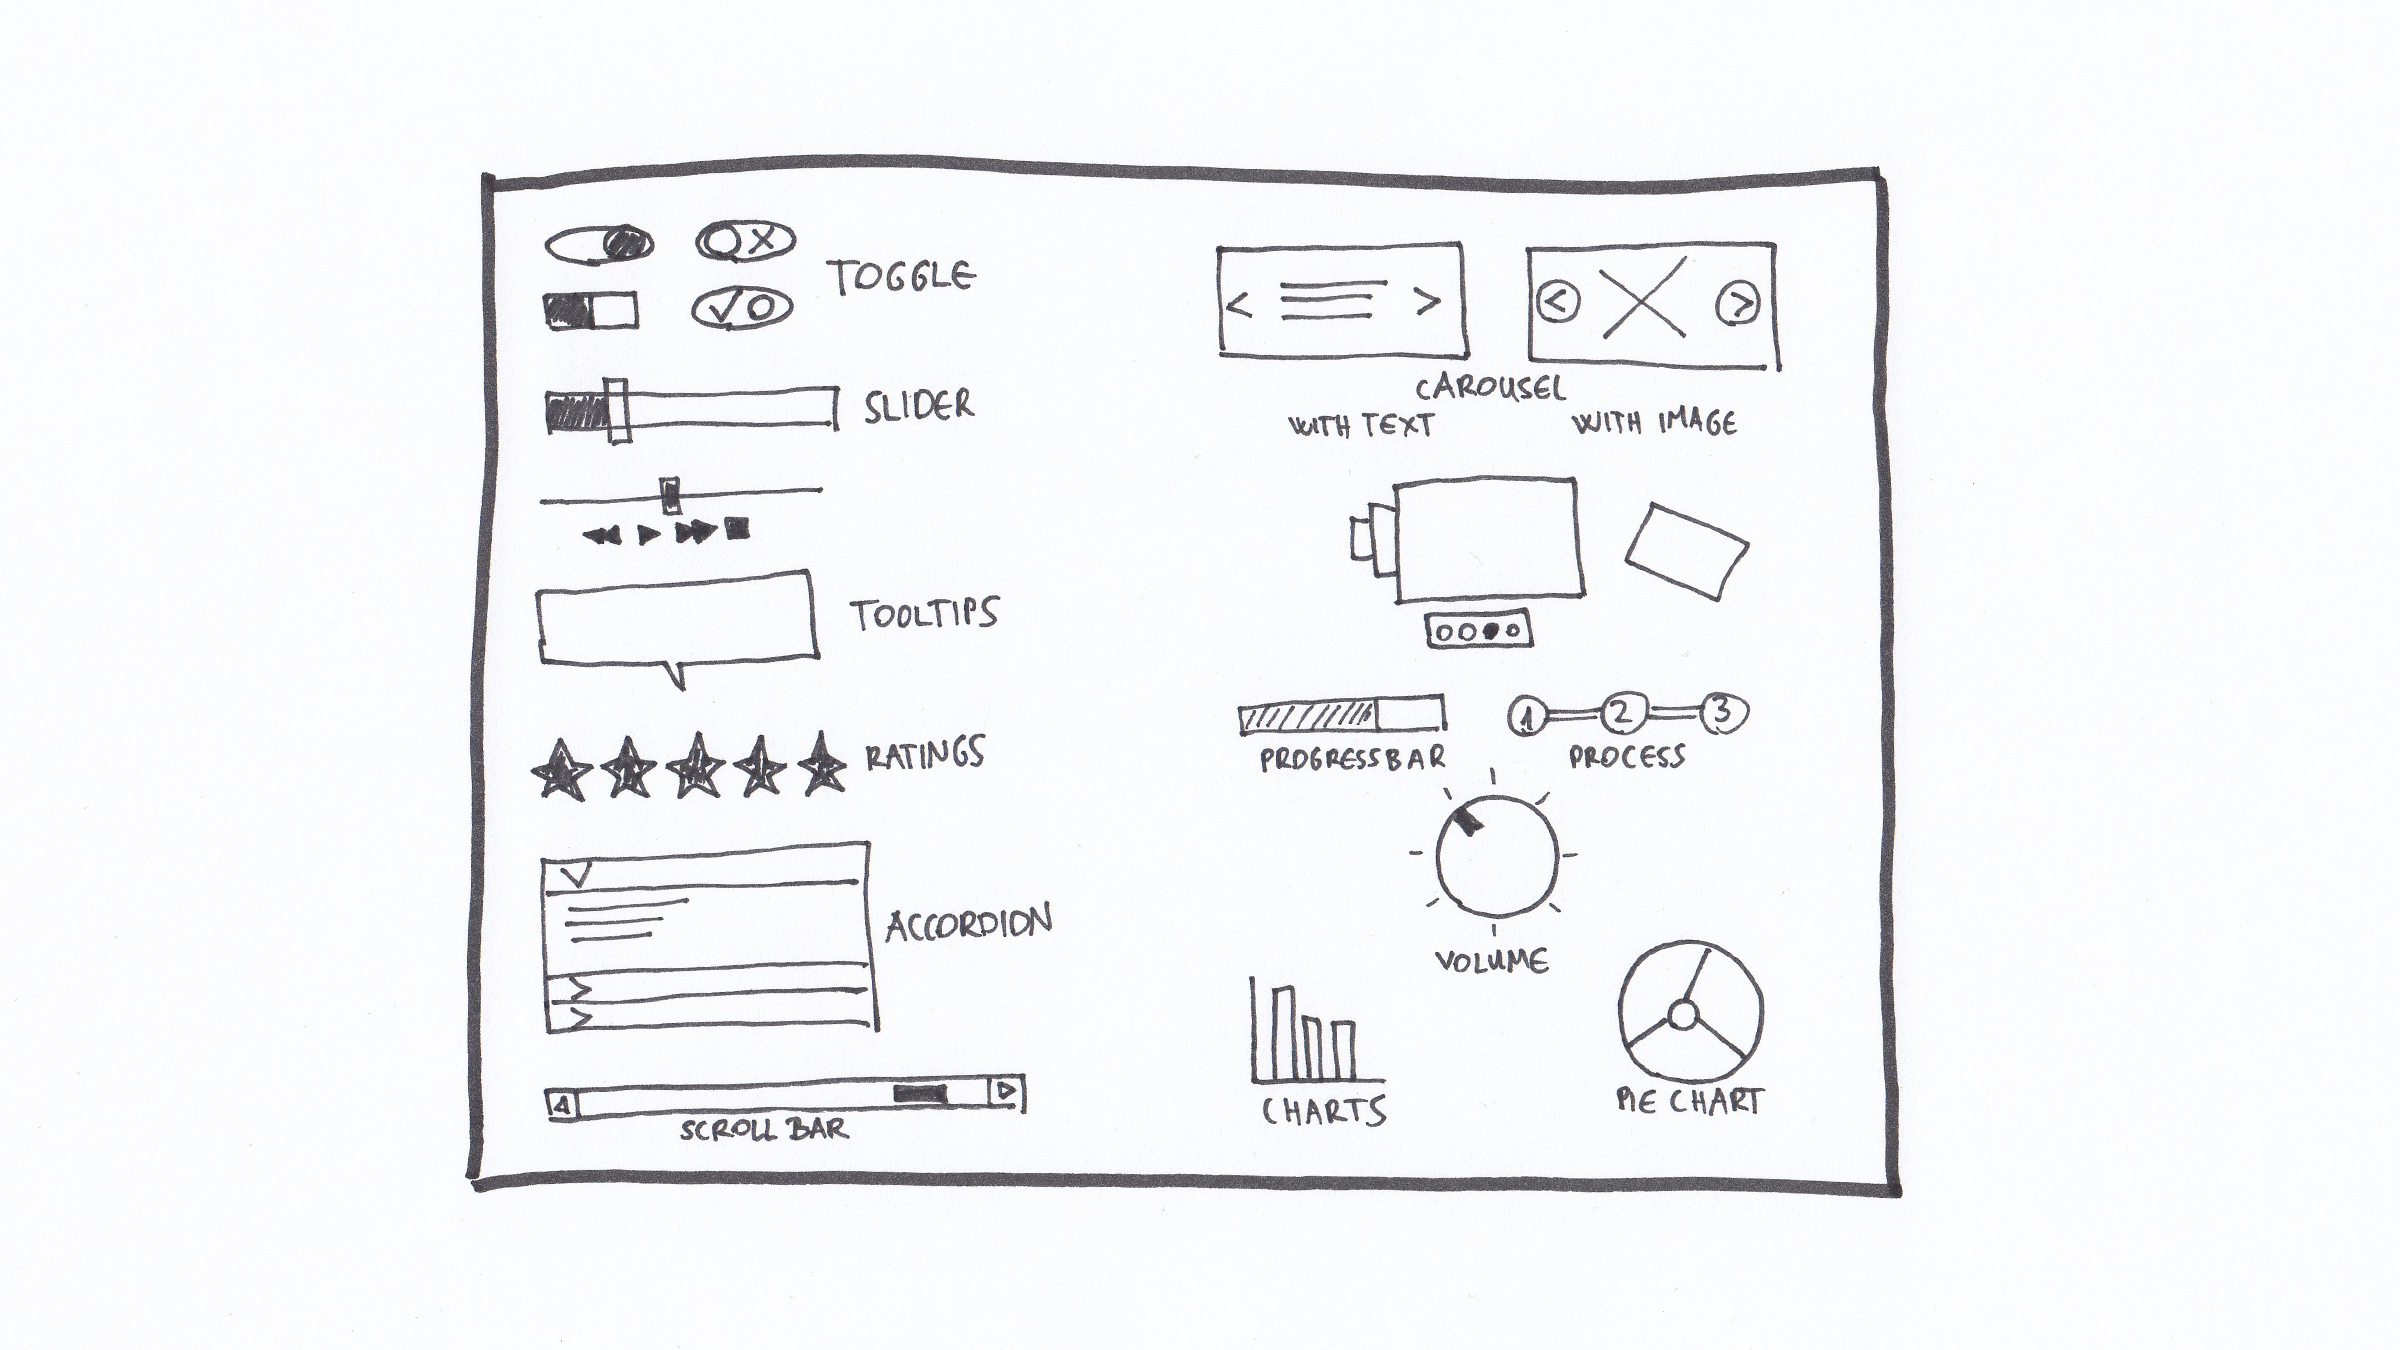 TOGGLE
SLIDER
TOOLTIPS
RATINGS
ACCORDION
SCROLL BAR
CAROUSEL
WITH TEXT
WITH IMAGE
PROGRESSBAR
1 2 3
PROCESS
VOLUME
CHARTS
PIE CHART